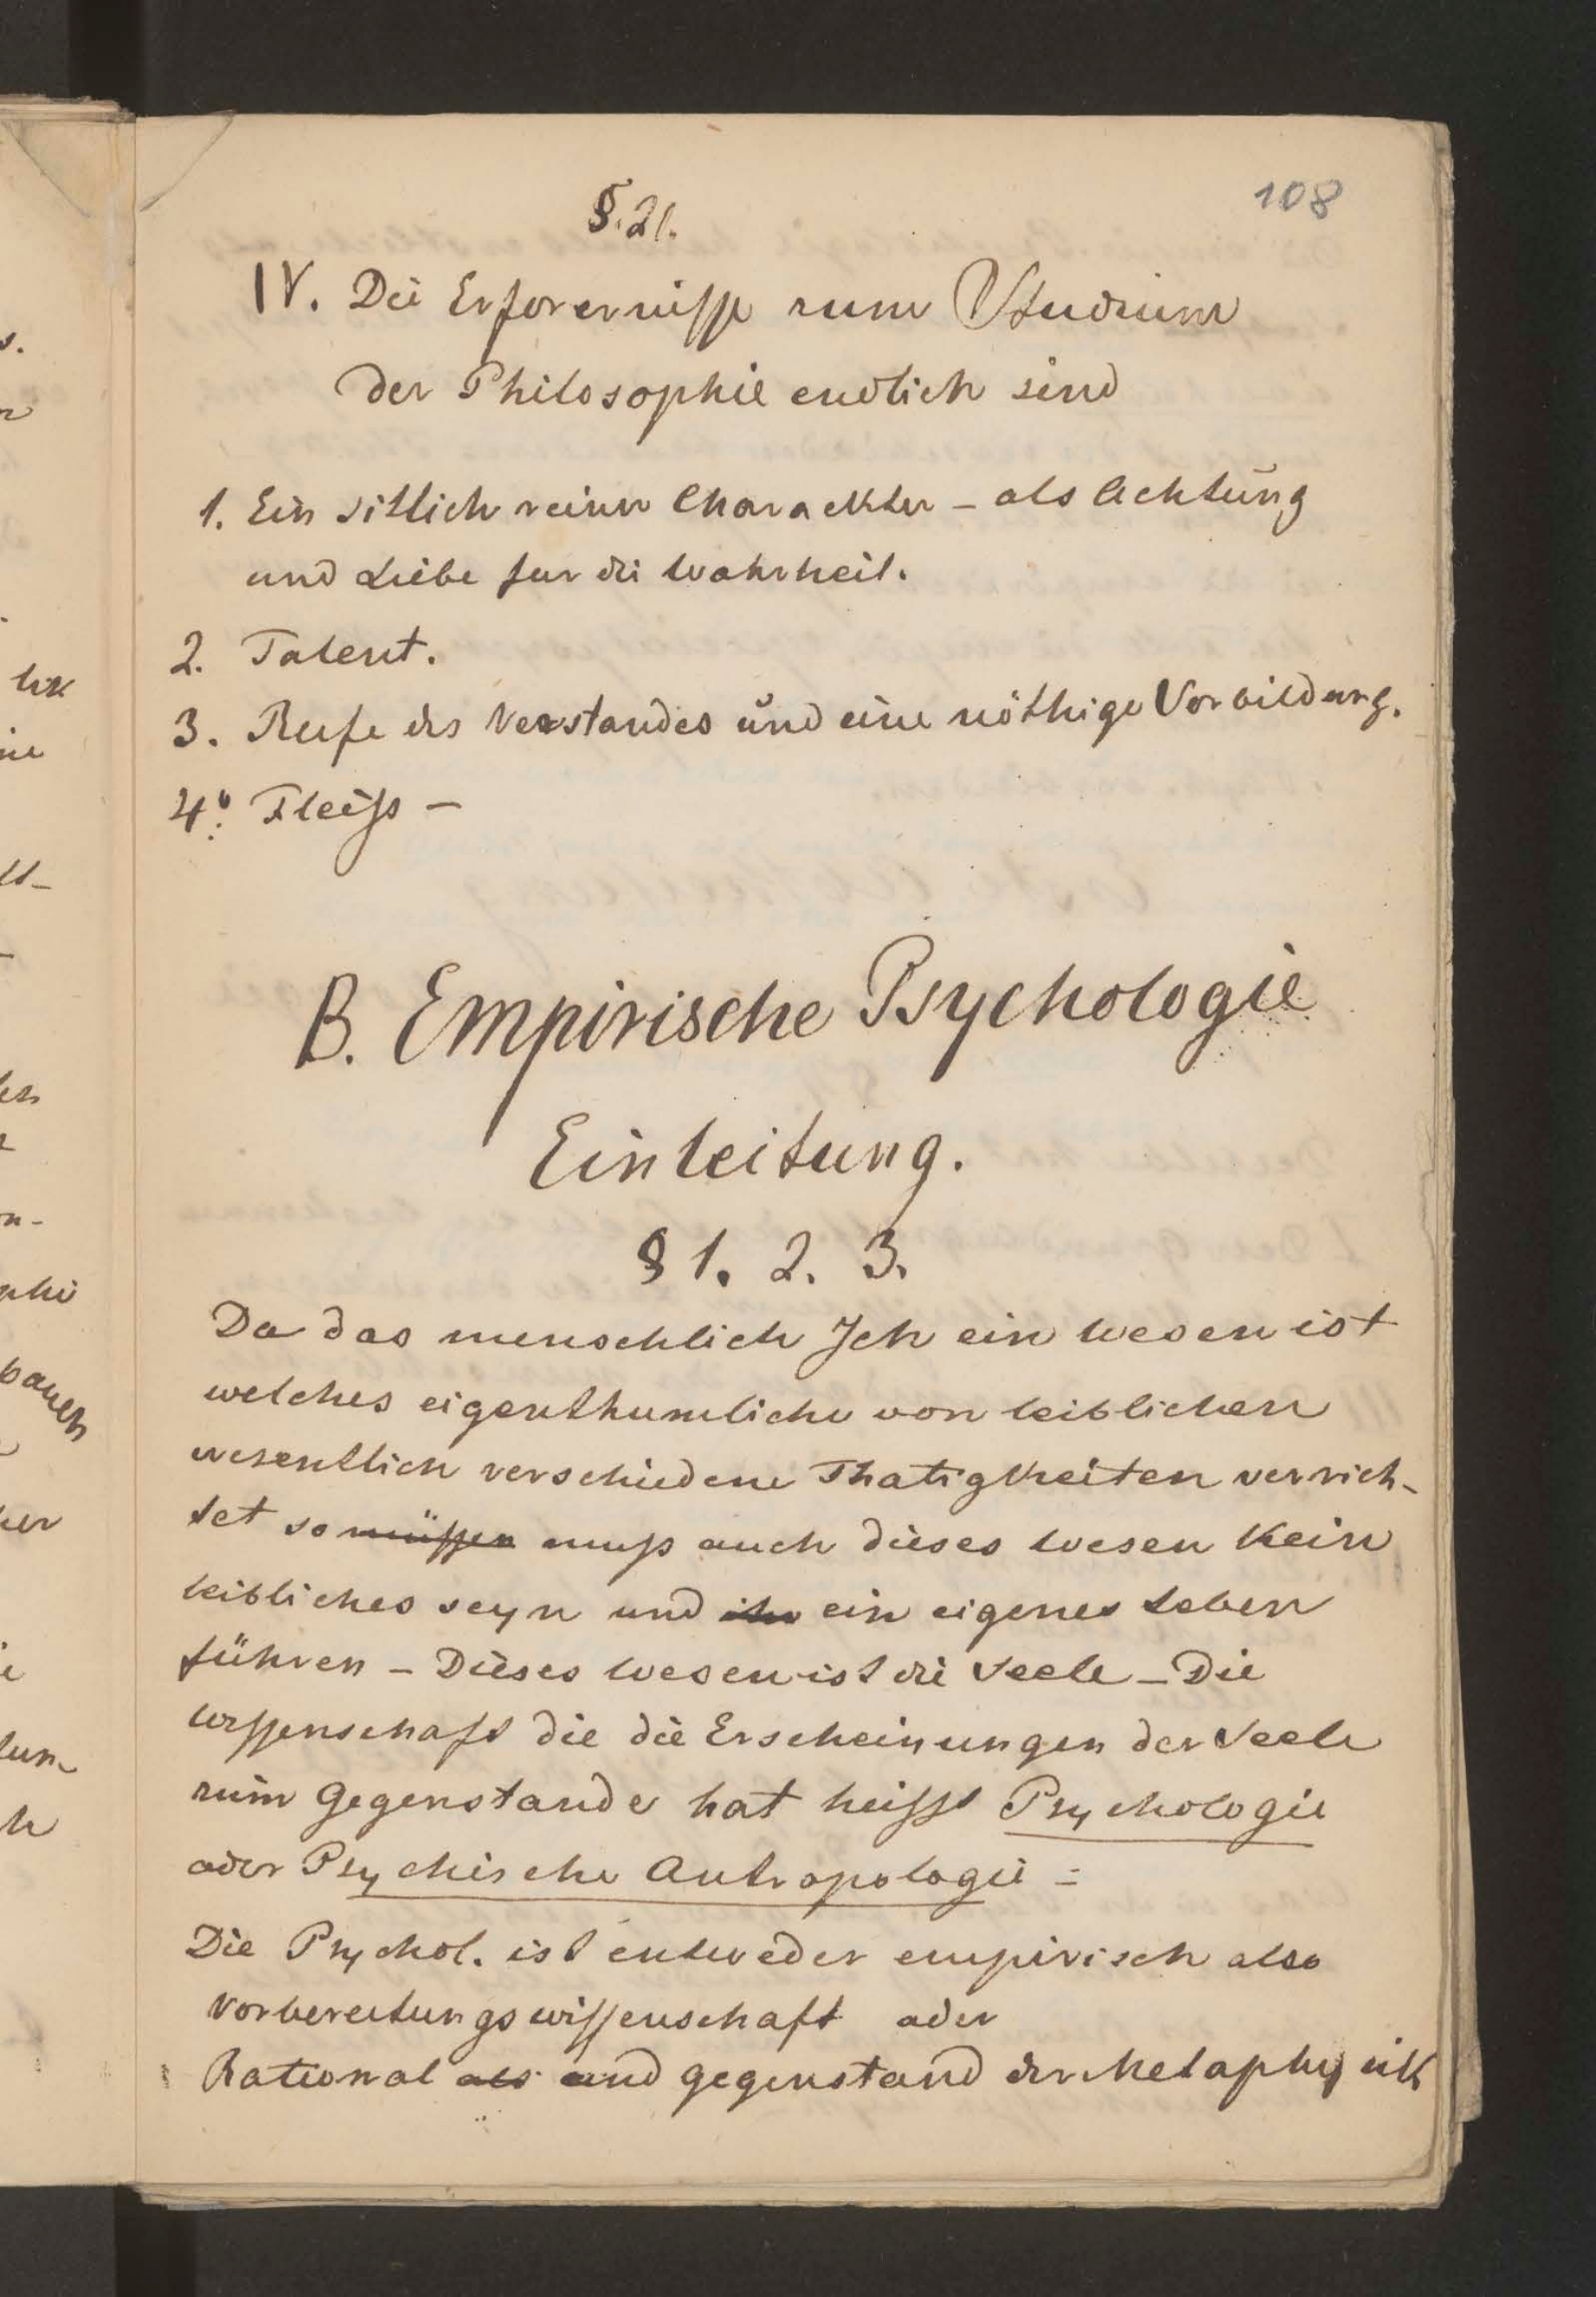 108
§. 21.
IV. Die Erforernisse zum Studium
der Philosophie endlich sind
1. Ein sittlich reiner Charackter – als Achtung
und Liebe fur die Wahrheit.
2. Talent.
3. Reife des Verstandes und eine nöthige Vorbildung.
4. Fleiss –
B. Empirische Psychologie
Einleitung.
§ 1. 2. 3.
Da das menschlich Ich ein Wesen ist
welches eigenthumliche von leiblichen
wesentlich verschiedene Thatigkeiten verrich-
tet so müssen muss auch dieses Wesen kein
leibliches seyn und ein eigenes Leben
führen – Dieses Wesen ist die Seele – Die
Wissenschaft die die Erscheinungen der Seele
zum Gegenstande hat heisst Psychologie
oder Psychische Antropologie =
Die Psychol. ist entweder empirisch also
Vorbereitungswissenschaft oder
Rational als und Gegenstand der Metaphysik